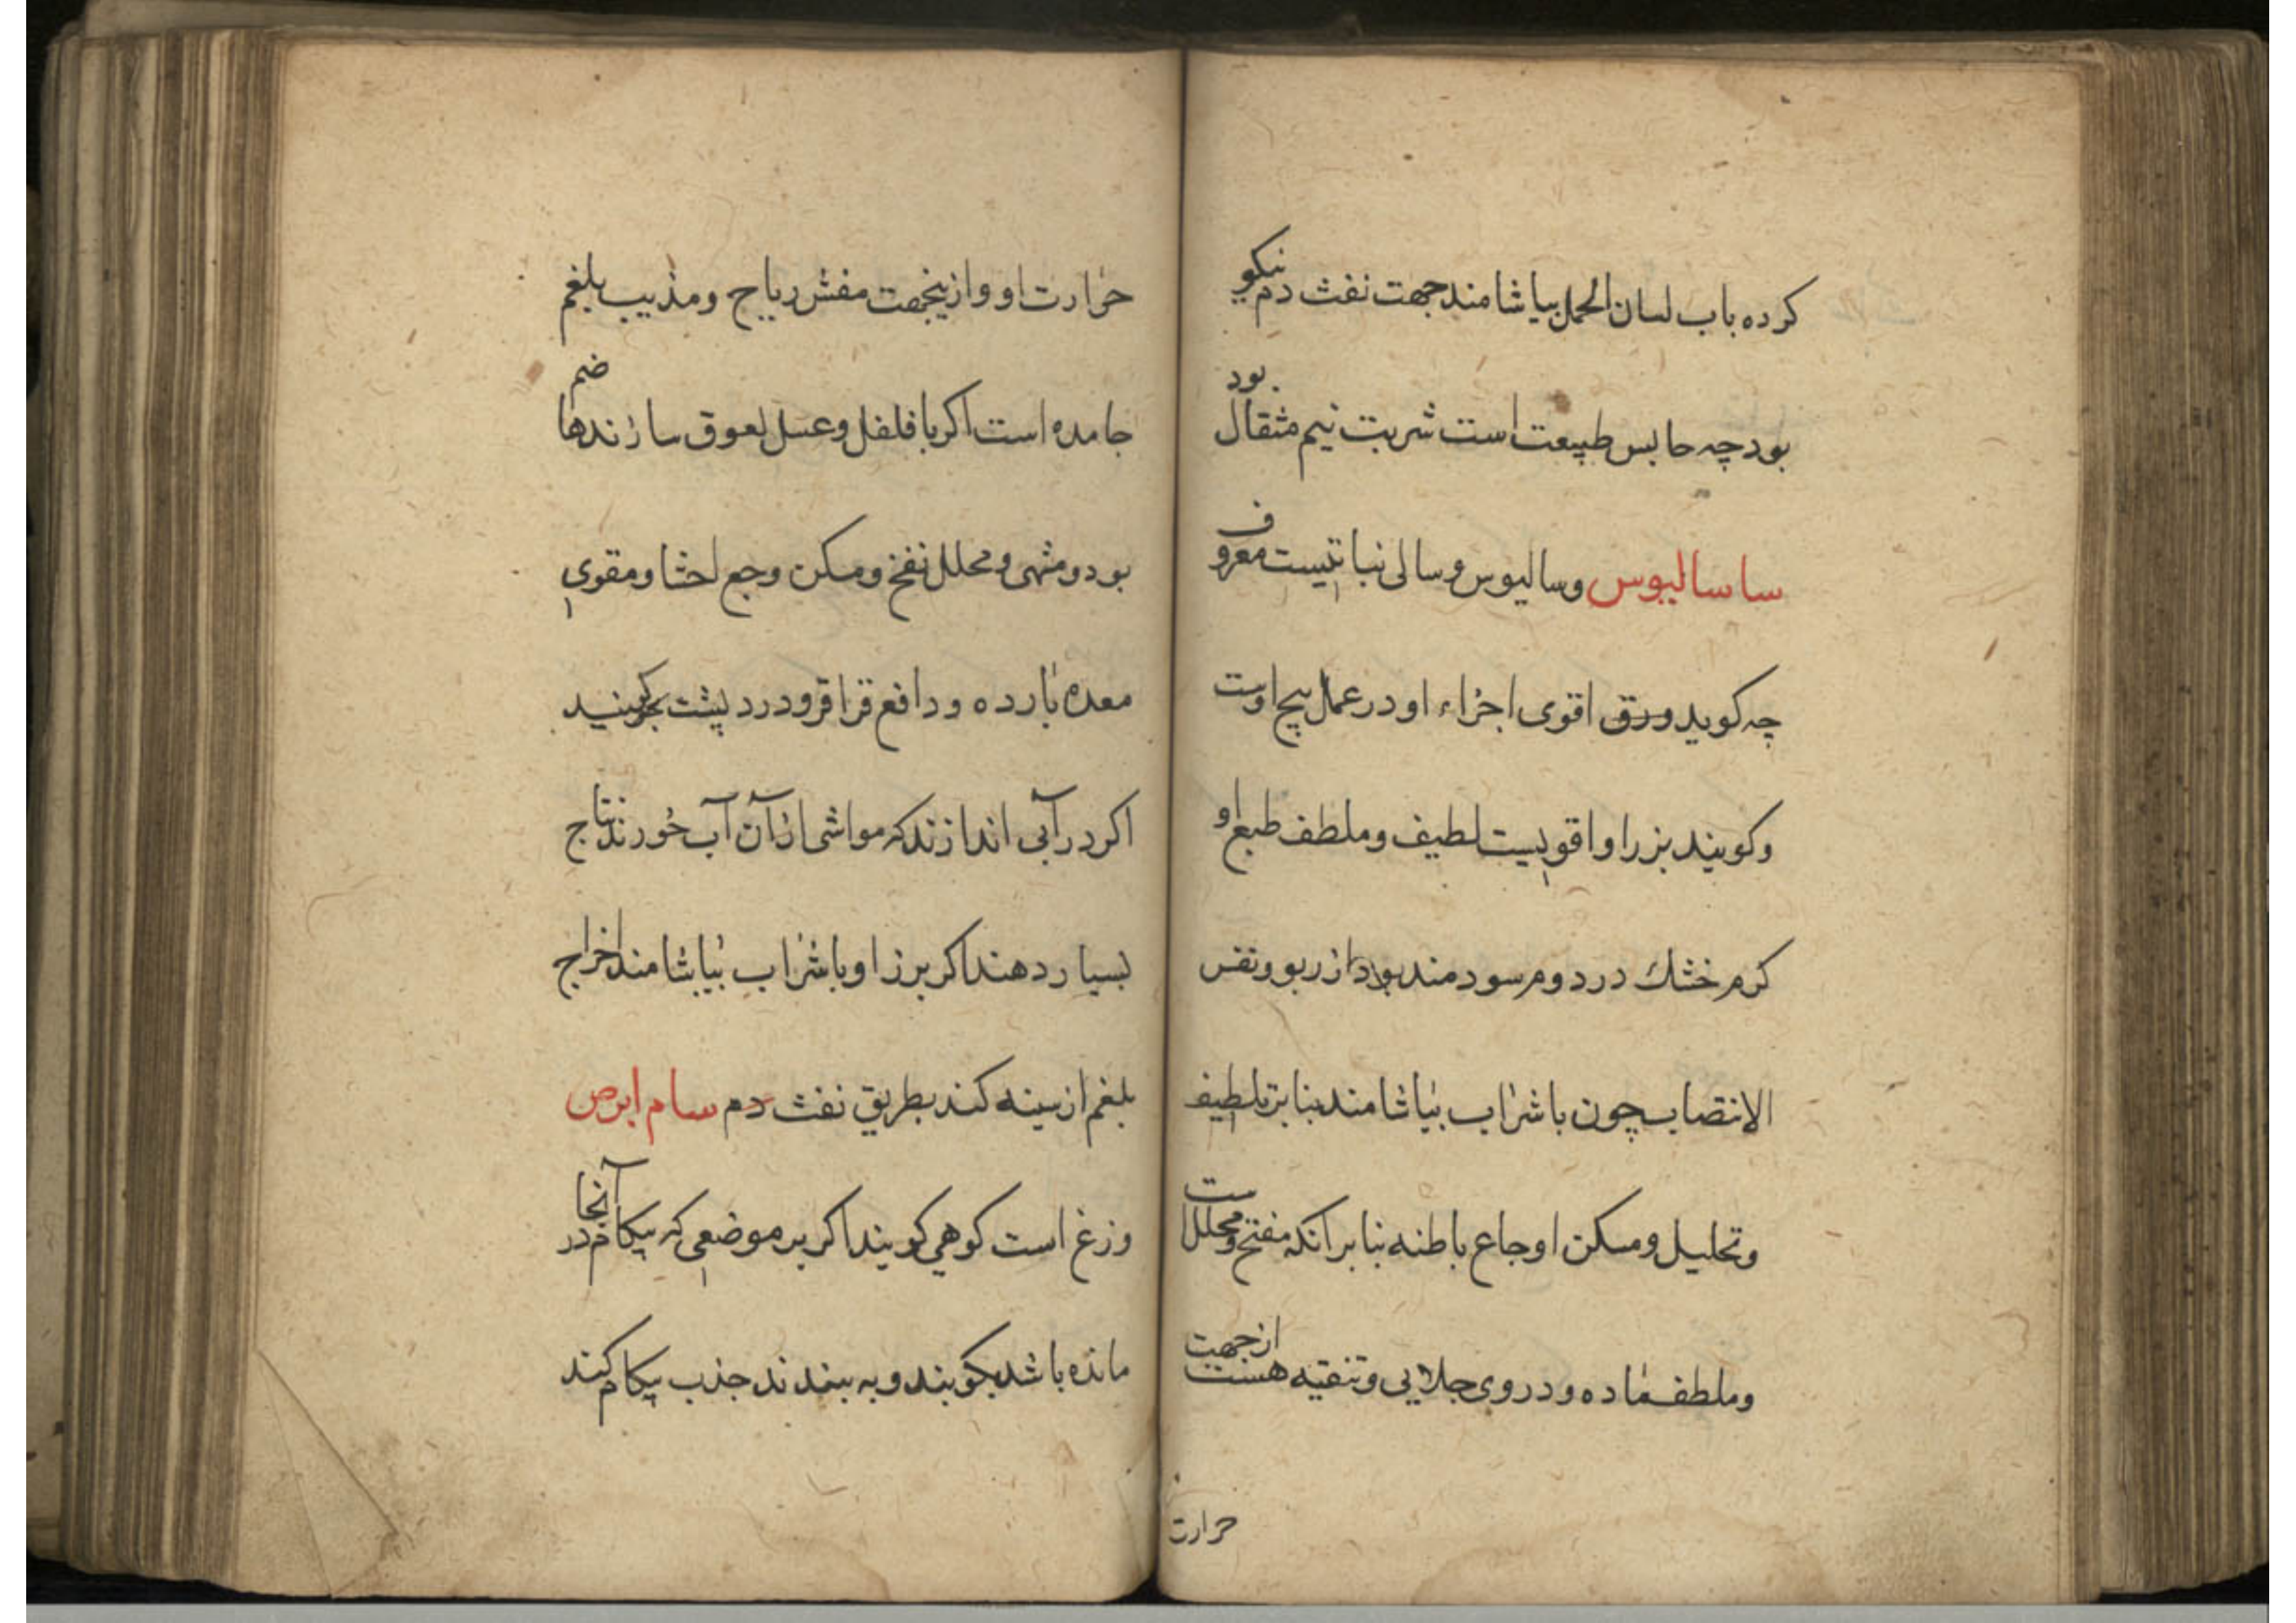 کرده باب لسان الحمل بیاشامند جهت نفث دم نیکو
بود چه حابس طبیعت است شربت نیم مثقال بود
ساسالیوس وسالیوس وسالی نباتیست معروف
چه کوید ورق اقوی اجزاء او در عمل بیخ اوست
وکویند بزر او اقویست لطیف وملطف طبع او
کرم خشک در دوم سودمند بود از ربو ونفس
الانتصاب چون با شراب بیاشامند بنا بر تلطیف
وتحلیل ومسکن اوجاع باطنه بنا بر آنکه مفتح ومحلل است
وملطف ماده ودر وی جلایی وتنقیه هست از جهت
حرارت
حرارت او واز ینجهت مفش ریاح ومذیب بلغم
جامده است اکر با فلفل وعسل لعوق سازند هاضم
بود ومشهی ومحلل نفخ ومسکن وجع احشا ومقوی
معده بارده ودافع قراقر ودرد پشت بکویند
اکر در آبی اندازند که مواشی ازان آب خورند نتاج
بسیار دهند اکر برز او با شراب بیاشامند اخراج
بلغم از سینه کند بطریق نفث دم سام ابرص
وزغ است کوهی کویند اکر بر موضعی که پیکام در آنجا
مانده باشد بکوبند وبه بندند جذب پیکام کند